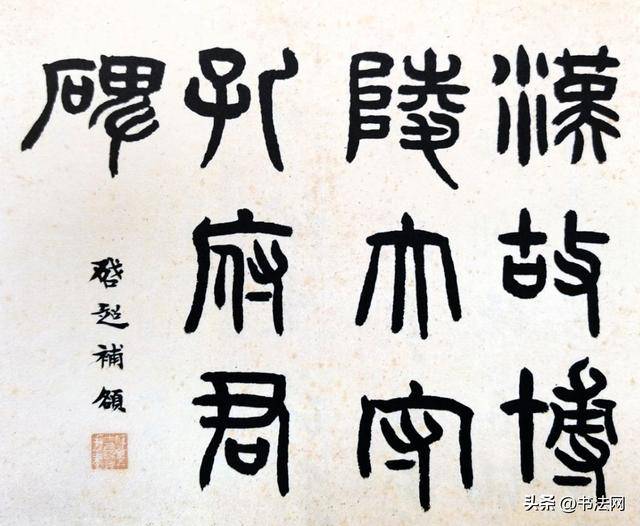 漢故博
陵太守
孔府君
碑
啓超補額
头条 @书法网